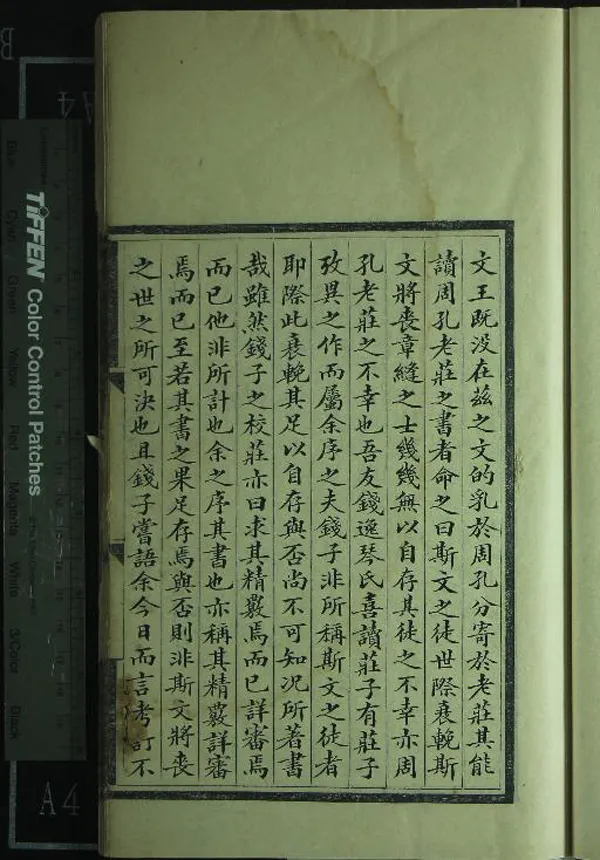 文王既没在茲之文的乳於周孔分寄於老莊其能
讀周孔老莊之書者命之曰斯文之徒世際衰輓斯
文將喪章縫之士幾幾無以自存其徒之不幸亦周
孔老莊之不幸也吾友錢逸琴氏喜讀莊子有莊子
攷異之作而屬余序之夫錢子非所稱斯文之徒者
耶際此衰輓其足以自存與否尚不可知況所著書
哉雖然錢子之校莊亦曰求其精覈焉而已詳審焉
而已他非所計也余之序其書也亦稱其精覈詳審
焉而已至若其書之果足存焉與否則非斯文將喪
之世之所可決也且錢子嘗語余今日而言考訂不
TIFFEN Color Control Patches
Blue
Cyan
Green
Yellow
Red
Magenta
White
3/Color
Black
A4
A4
B